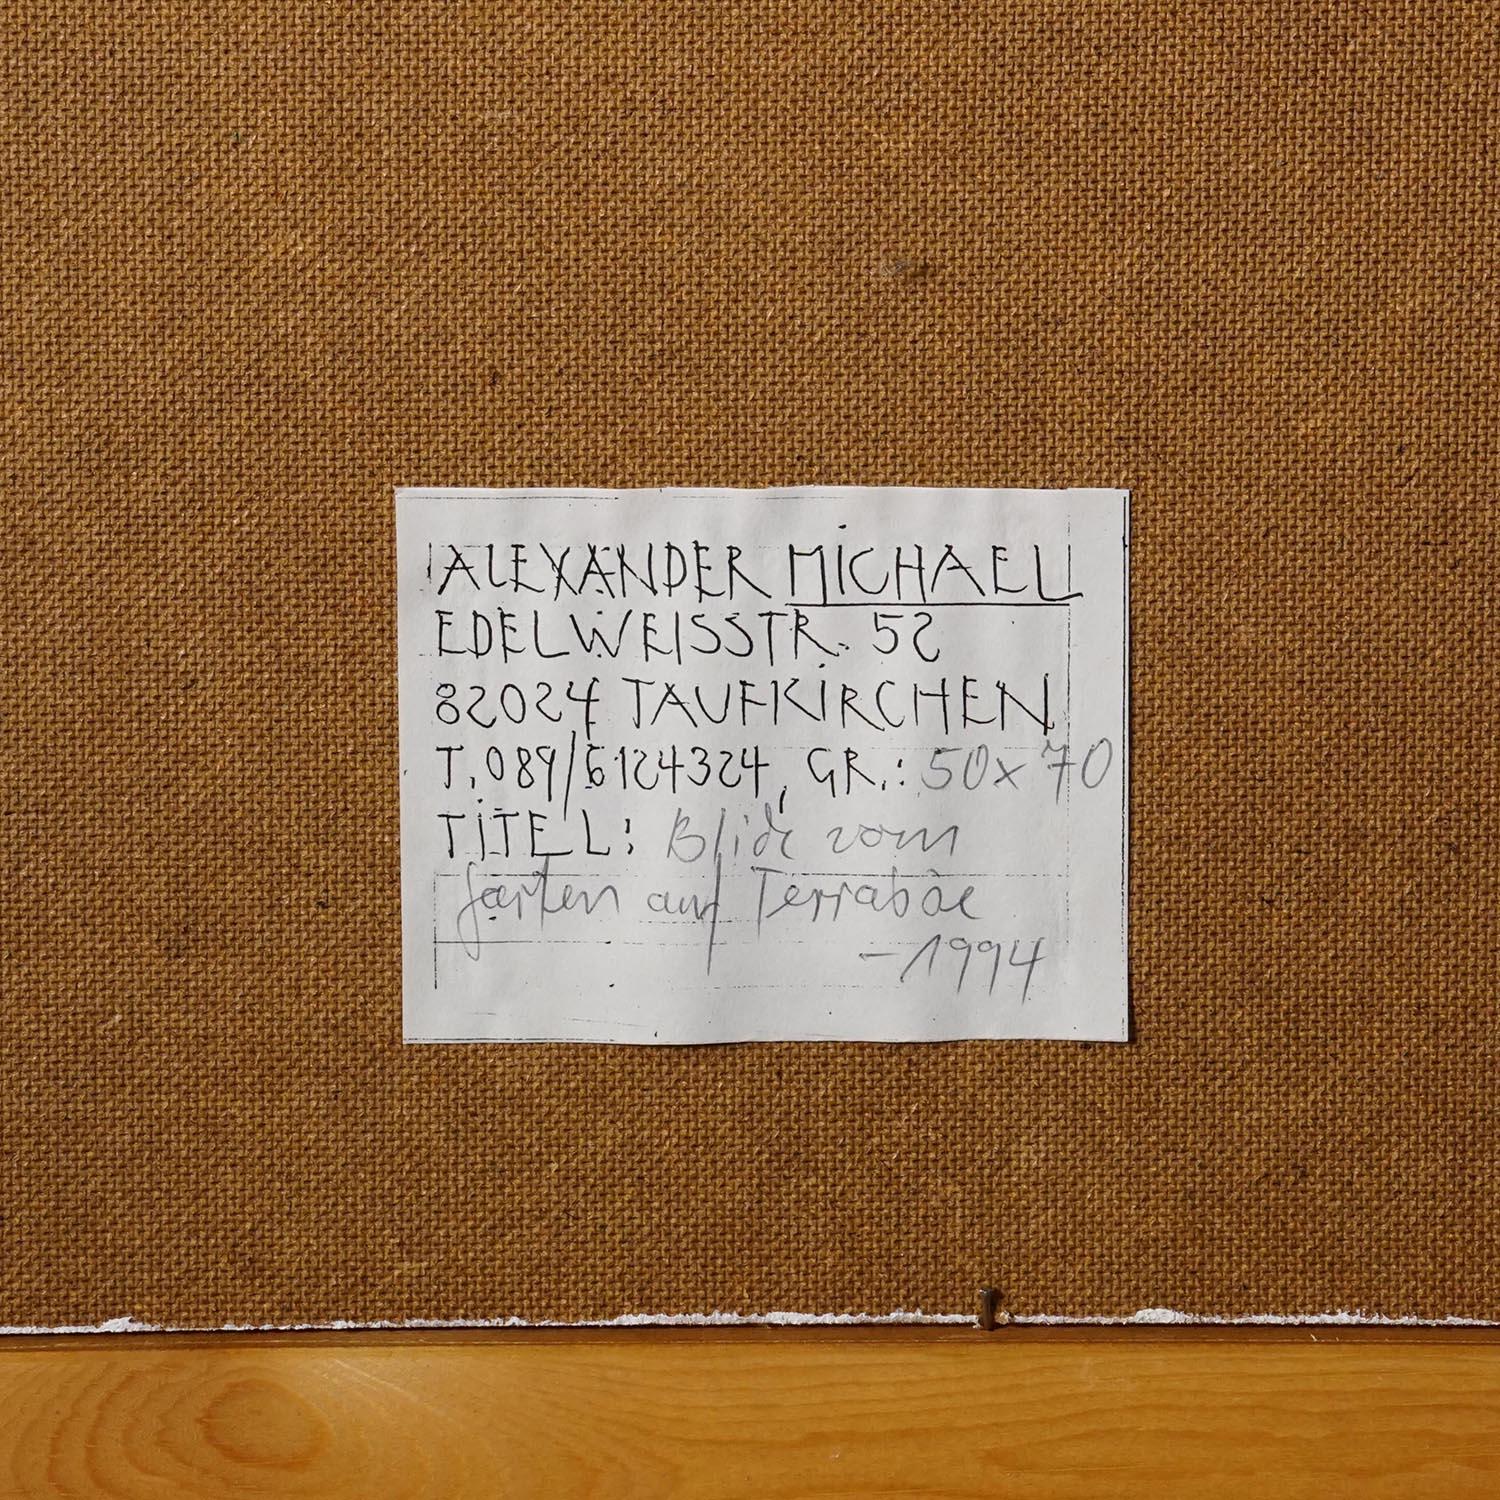 ALEXANDER MICHAEL
EDELWEISSTR. 52
82024 TAUFKIRCHEN
T. 089/6124324, GR.: 50x70
TITEL: Blick vom
Garten auf Terrabôe
-1994